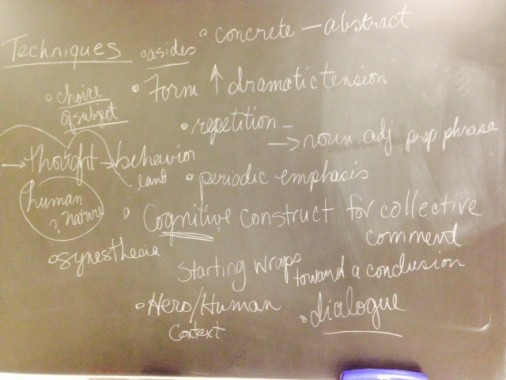 Techniques
• asides
• concrete — abstract
• choice
of subject
• Form ↑ dramatic tension
• repetition —
→ noun adj prep phrase
→ thought → behavior
land
• periodic emphasis
human
? nature
• Cognitive construct for collective
comment
• synesthesia
starting wraps toward a conclusion
• Hero/Human
Context
• dialogue